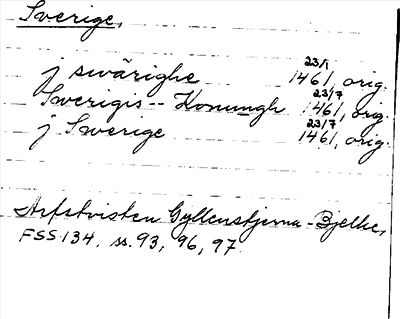 Sverige.
j swärighe 23/1 1461, orig.
Swerigis -- Konungh 23/7 1461, orig.
j Swerige 23/7 1461, orig.
Arfstvisten Gyllenstjerna-Bjelke,
FSS 134, ss. 93, 96, 97.